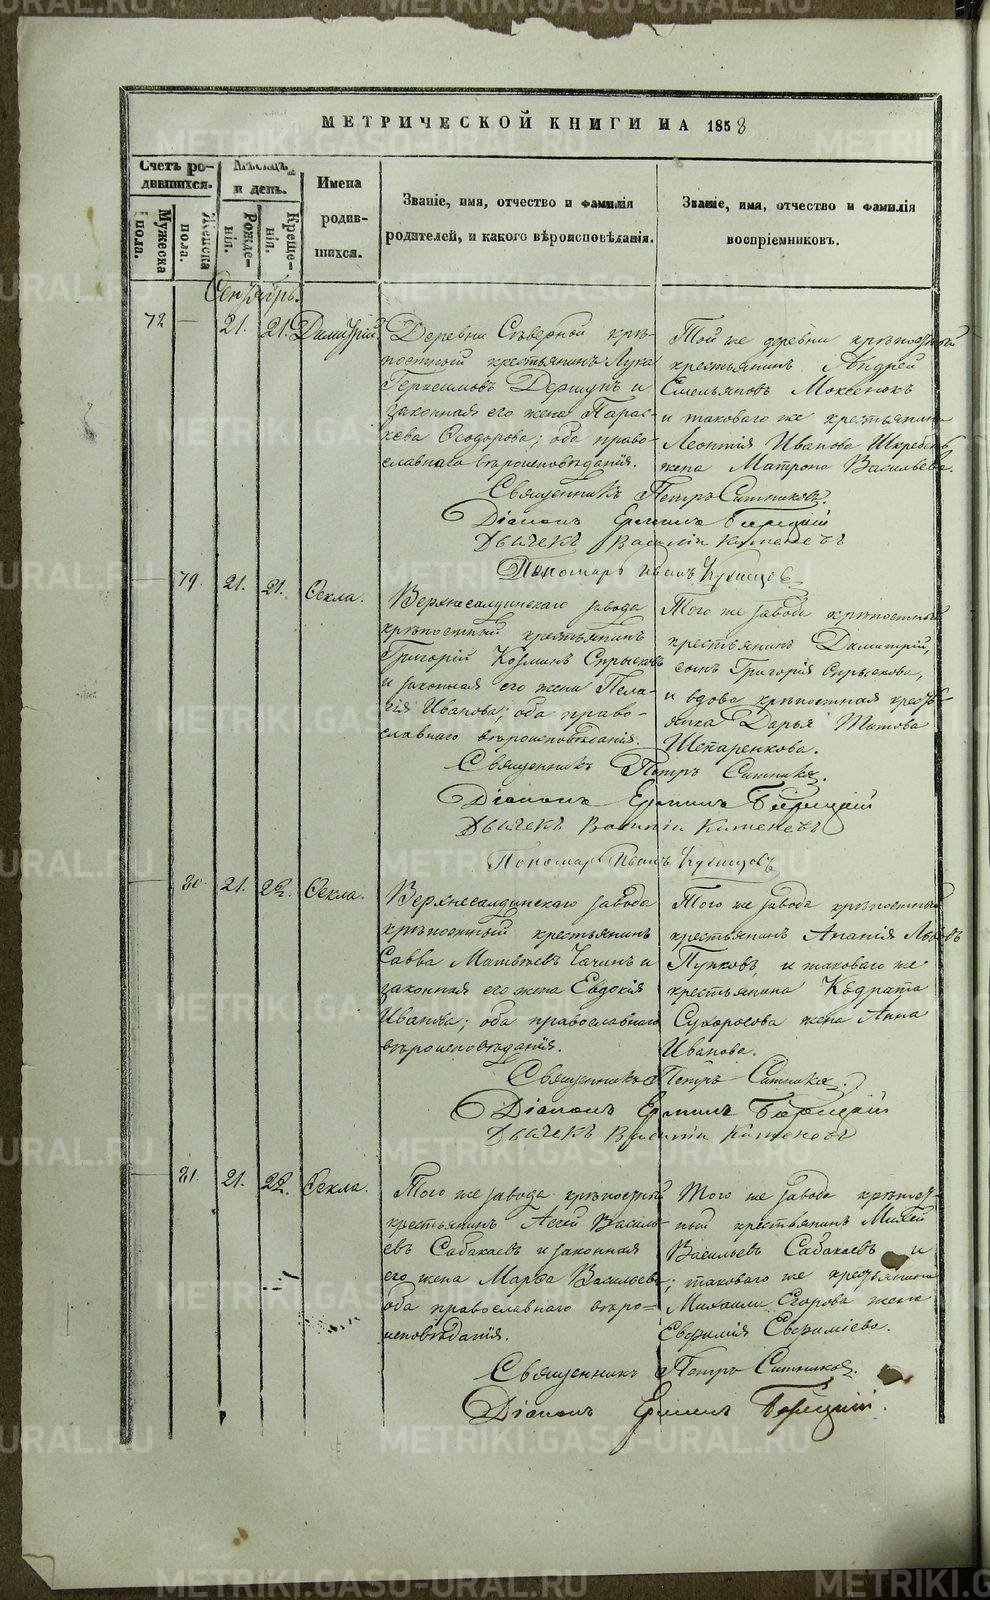 МЕТРИЧЕСКОЙ КНИГИ НА 1858
Счетъ ро-
дившихся.
Мѣсяцъ
и день.
Имена
родив-
шихся.
Званіе, имя, отчество и фамилія
родителей, и какого вѣроисповѣданія.
Званіе, имя, отчество и фамилія
воспріемниковъ.
Мужеска
пола.
Женска
пола.
Рожде-
нія.
Креще-
нія.
Сентябрь.
72 — 21. 21. Димитрій
Деревни Сѣверной крѣ-
постный крестьянинъ Лука
Герасимовъ и
законная его жена Парас-
кева Ѳеодорова; оба право-
славнаго вѣроисповѣданія.
Той же деревни крѣпостный
крестьянинъ Андрей
Емельяновъ
и таковаго же крестьянина
Леонтія Иванова
жена Матрона Васильева.
Священникъ Петръ Ситниковъ.
Діаконъ Ермилъ
Дьячекъ Василій
Пономарь Иванъ
79. 21. 21. Ѳекла.
Верхнесалдинскаго завода
крѣпостный крестьянинъ
Григорій Козминъ Спрысковъ
и законная его жена Пела-
гія Иванова; оба право-
славнаго вѣроисповѣданія.
Того же завода крѣпостный
крестьянинъ Димитрій,
сынъ Григорія Спрыскова,
и вдова крѣпостная кресть-
янка Дарья Титова
Шепаренкова.
Священникъ Петръ Ситниковъ.
Діаконъ Ермилъ
Дьячекъ Василій
Пономарь Иванъ
80. 21. 22. Ѳекла.
Верхнесалдинскаго завода
крѣпостный крестьянинъ
Савва Матвѣевъ Чачинъ и
законная его жена Евдокія
Иванова; оба православнаго
вѣроисповѣданія.
Того же завода крѣпостный
крестьянинъ Ананія Львовъ
Пупковъ, и таковаго же
крестьянина Кодрата
Сухоросова жена Анна
Иванова.
Священникъ Петръ Ситниковъ.
Діаконъ Ермилъ
Дьячекъ Василій
81. 21. 22. Ѳекла.
Того же завода крѣпостный
крестьянинъ Агей Василь-
евъ Сабакаевъ и законная
его жена Марѳа Васильева;
оба православнаго вѣро-
исповѣданія.
Того же завода крѣпост-
ный крестьянинъ Михей
Васильевъ Сабакаевъ и
таковаго же крестьянина
Михаила Егорова жена
Евфимія Евфиміева.
Священникъ Петръ Ситниковъ.
Діаконъ Ермилъ
METRIKI.GASO-URAL.RU